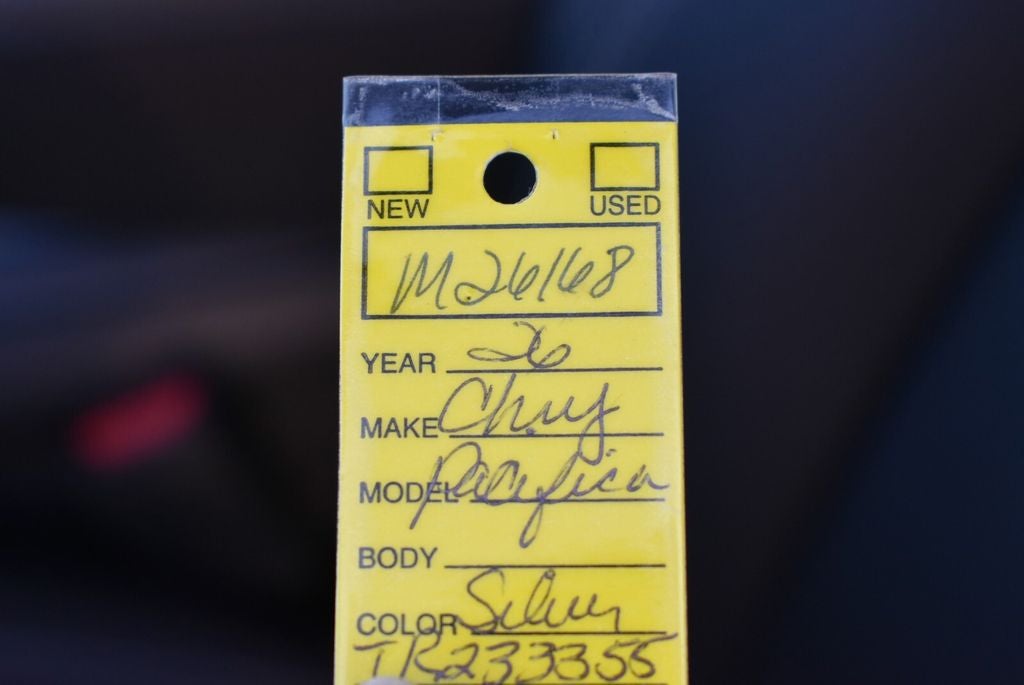 NEW USED
M26168
YEAR 26
MAKE Chry
MODEL Pacifica
BODY
COLOR Silver
TR233355